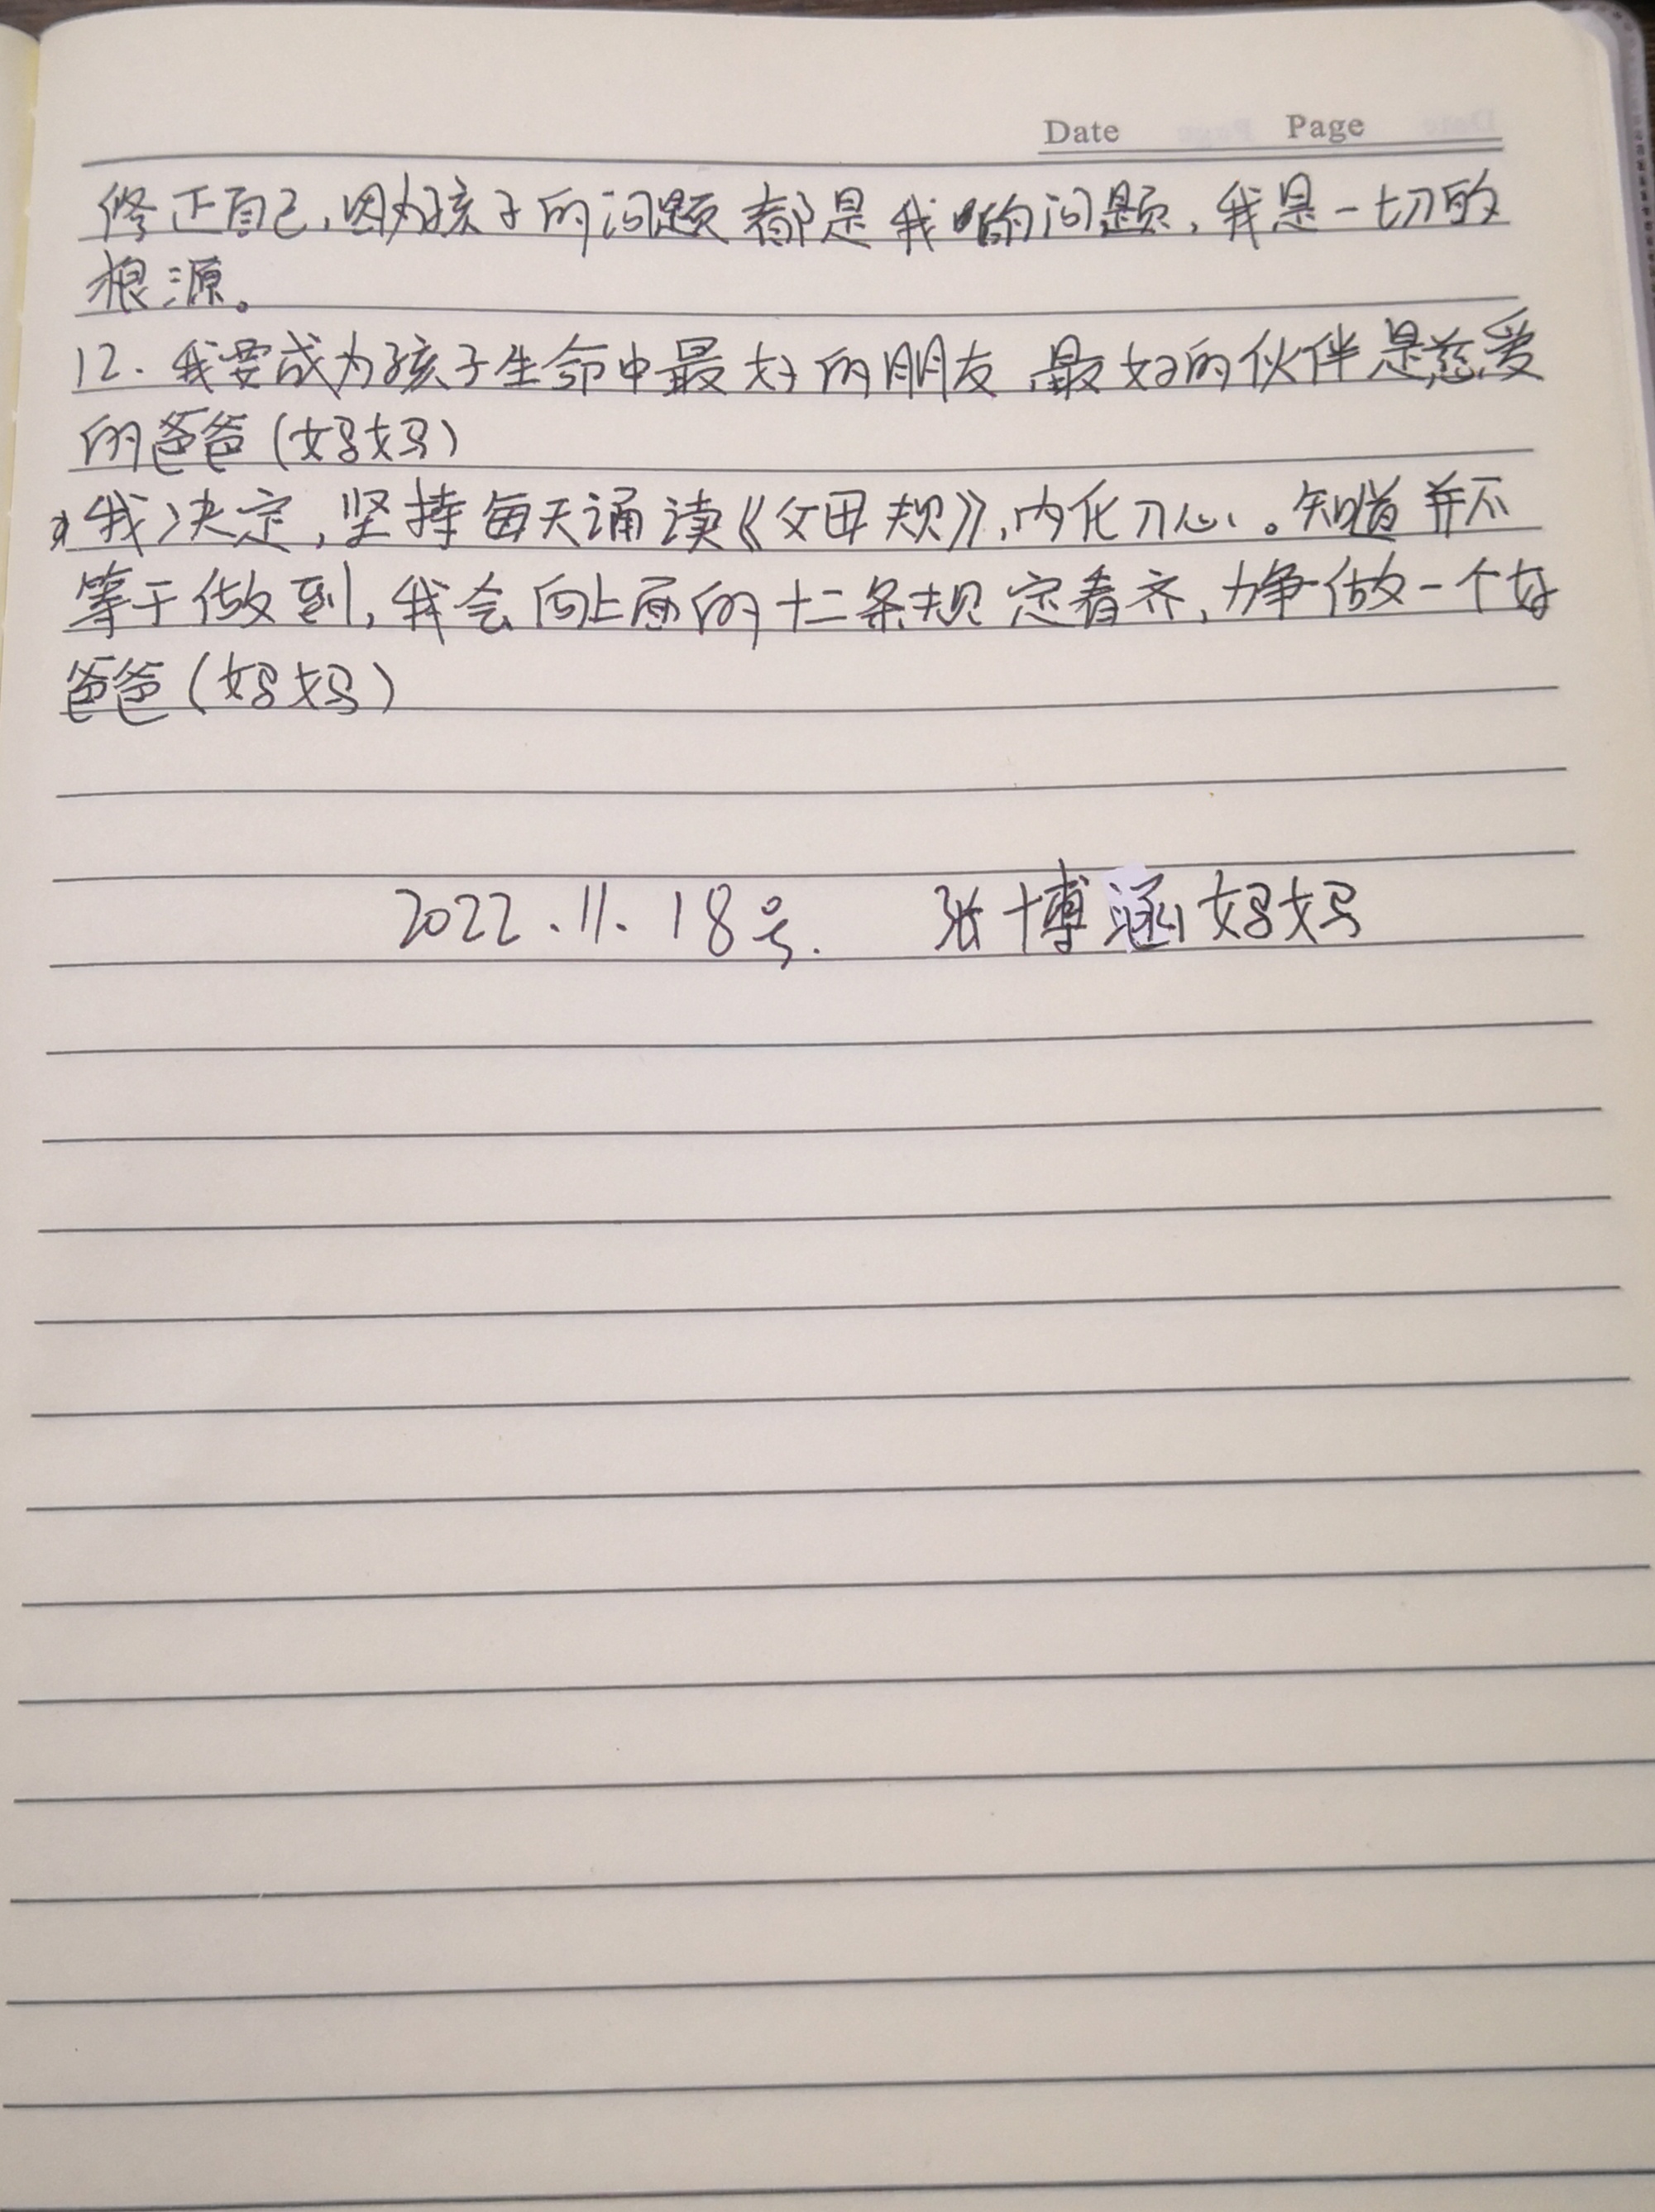 Date Page
修正自己,因为孩子的问题都是我的问题,我是一切的
根源。
12.我要成为孩子生命中最好的朋友、最好的伙伴是慈爱
的爸爸(妈妈)
我决定,坚持每天诵读《父母规》,内化刀心。知道并不
等于做到,我会向上面的十二条规定看齐,力争做一个好
爸爸(妈妈)
2022.11.18号. 张博涵妈妈